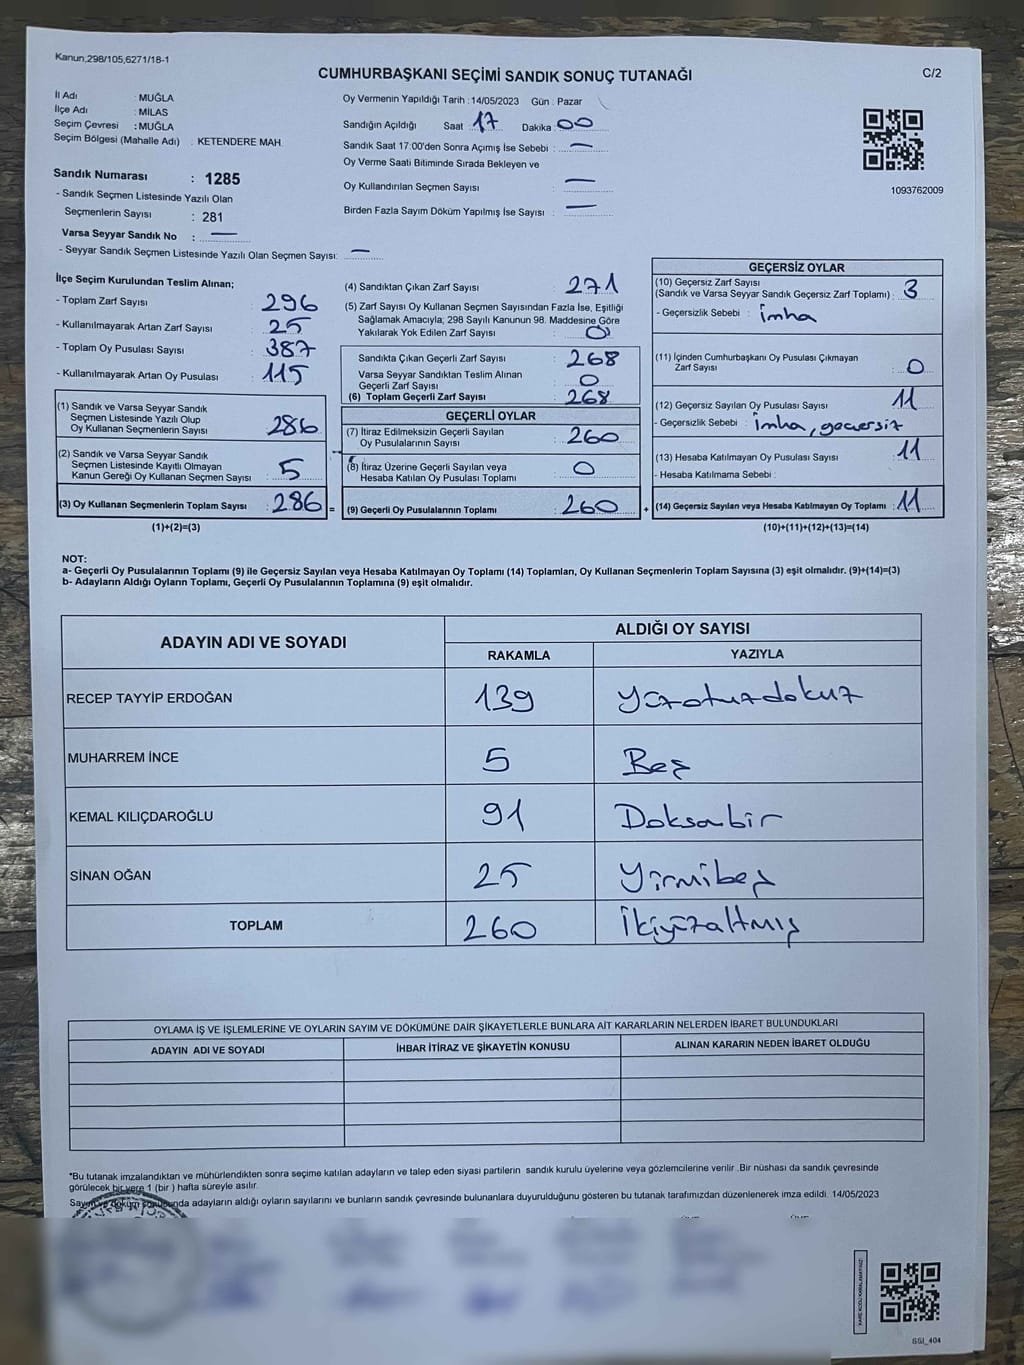 Kanun,298/105,6271/18-1
CUMHURBAŞKANI SEÇİMİ SANDIK SONUÇ TUTANAĞI
C/2
İl Adı : MUĞLA
İlçe Adı : MİLAS
Seçim Çevresi : MUĞLA
Seçim Bölgesi (Mahalle Adı) : KETENDERE MAH.
Sandık Numarası : 1285
- Sandık Seçmen Listesinde Yazılı Olan
Seçmenlerin Sayısı : 281
Varsa Seyyar Sandık No : —
- Seyyar Sandık Seçmen Listesinde Yazılı Olan Seçmen Sayısı: —
Oy Vermenin Yapıldığı Tarih : 14/05/2023 Gün : Pazar
Sandığın Açıldığı Saat 17 Dakika : 00
Sandık Saat 17:00'den Sonra Açımış İse Sebebi : —
Oy Verme Saati Bitiminde Sırada Bekleyen ve
Oy Kullandırılan Seçmen Sayısı : —
Birden Fazla Sayım Döküm Yapılmış İse Sayısı : —
1093762009
İlçe Seçim Kurulundan Teslim Alınan;
- Toplam Zarf Sayısı : 296
- Kullanılmayarak Artan Zarf Sayısı : 25
- Toplam Oy Pusulası Sayısı : 387
- Kullanılmayarak Artan Oy Pusulası : 115
(1) Sandık ve Varsa Seyyar Sandık
Seçmen Listesinde Yazılı Olup
Oy Kullanan Seçmenlerin Sayısı : 286
(2) Sandık ve Varsa Seyyar Sandık
Seçmen Listesinde Kayıtlı Olmayan
Kanun Gereği Oy Kullanan Seçmen Sayısı : 5
(3) Oy Kullanan Seçmenlerin Toplam Sayısı : 286
(1)+(2)=(3)
(4) Sandıktan Çıkan Zarf Sayısı : 271
(5) Zarf Sayısı Oy Kullanan Seçmen Sayısından Fazla İse, Eşitliği
Sağlamak Amacıyla; 298 Sayılı Kanunun 98. Maddesine Göre
Yakılarak Yok Edilen Zarf Sayısı : 0
Sandıkta Çıkan Geçerli Zarf Sayısı : 268
Varsa Seyyar Sandıktan Teslim Alınan
Geçerli Zarf Sayısı : 0
(6) Toplam Geçerli Zarf Sayısı : 268
GEÇERLİ OYLAR
(7) İtiraz Edilmeksizin Geçerli Sayılan
Oy Pusulalarının Sayısı : 260
(8) İtiraz Üzerine Geçerli Sayılan veya
Hesaba Katılan Oy Pusulası Toplamı : 0
= (9) Geçerli Oy Pusulalarının Toplamı : 260
GEÇERSİZ OYLAR
(10) Geçersiz Zarf Sayısı
(Sandık ve Varsa Seyyar Sandık Geçersiz Zarf Toplamı) : 3
- Geçersizlik Sebebi : İmha
(11) İçinden Cumhurbaşkanı Oy Pusulası Çıkmayan
Zarf Sayısı : 0
(12) Geçersiz Sayılan Oy Pusulası Sayısı : 11
- Geçersizlik Sebebi : İmha, geçersiz
(13) Hesaba Katılmayan Oy Pusulası Sayısı : 11
- Hesaba Katılmama Sebebi :
+ (14) Geçersiz Sayılan veya Hesaba Katılmayan Oy Toplamı : 11
(10)+(11)+(12)+(13)=(14)
NOT:
a- Geçerli Oy Pusulalarının Toplamı (9) ile Geçersiz Sayılan veya Hesaba Katılmayan Oy Toplamı (14) Toplamları, Oy Kullanan Seçmenlerin Toplam Sayısına (3) eşit olmalıdır. (9)+(14)=(3)
b- Adayların Aldığı Oyların Toplamı, Geçerli Oy Pusulalarının Toplamına (9) eşit olmalıdır.
ADAYIN ADI VE SOYADI
ALDIĞI OY SAYISI
RAKAMLA YAZIYLA
RECEP TAYYİP ERDOĞAN 139 Yüzotuzdokuz
MUHARREM İNCE 5 Beş
KEMAL KILIÇDAROĞLU 91 Doksanbir
SİNAN OĞAN 25 Yirmibeş
TOPLAM 260 İkiyüzaltmış
OYLAMA İŞ VE İŞLEMLERİNE VE OYLARIN SAYIM VE DÖKÜMÜNE DAİR ŞİKAYETLERLE BUNLARA AİT KARARLARIN NELERDEN İBARET BULUNDUKLARI
ADAYIN ADI VE SOYADI İHBAR İTİRAZ VE ŞİKAYETİN KONUSU ALINAN KARARIN NEDEN İBARET OLDUĞU
*Bu tutanak imzalandıktan ve mühürlendikten sonra seçime katılan adayların ve talep eden siyasi partilerin sandık kurulu üyelerine veya gözlemcilerine verilir .Bir nüshası da sandık çevresinde
görülecek bir yere 1 (bir ) hafta süreyle asılır.
Sayım ve döküm sonunda adayların aldığı oyların sayılarını ve bunların sandık çevresinde bulunanlara duyurulduğunu gösteren bu tutanak tarafımızdan düzenlenerek imza edildi. 14/05/2023